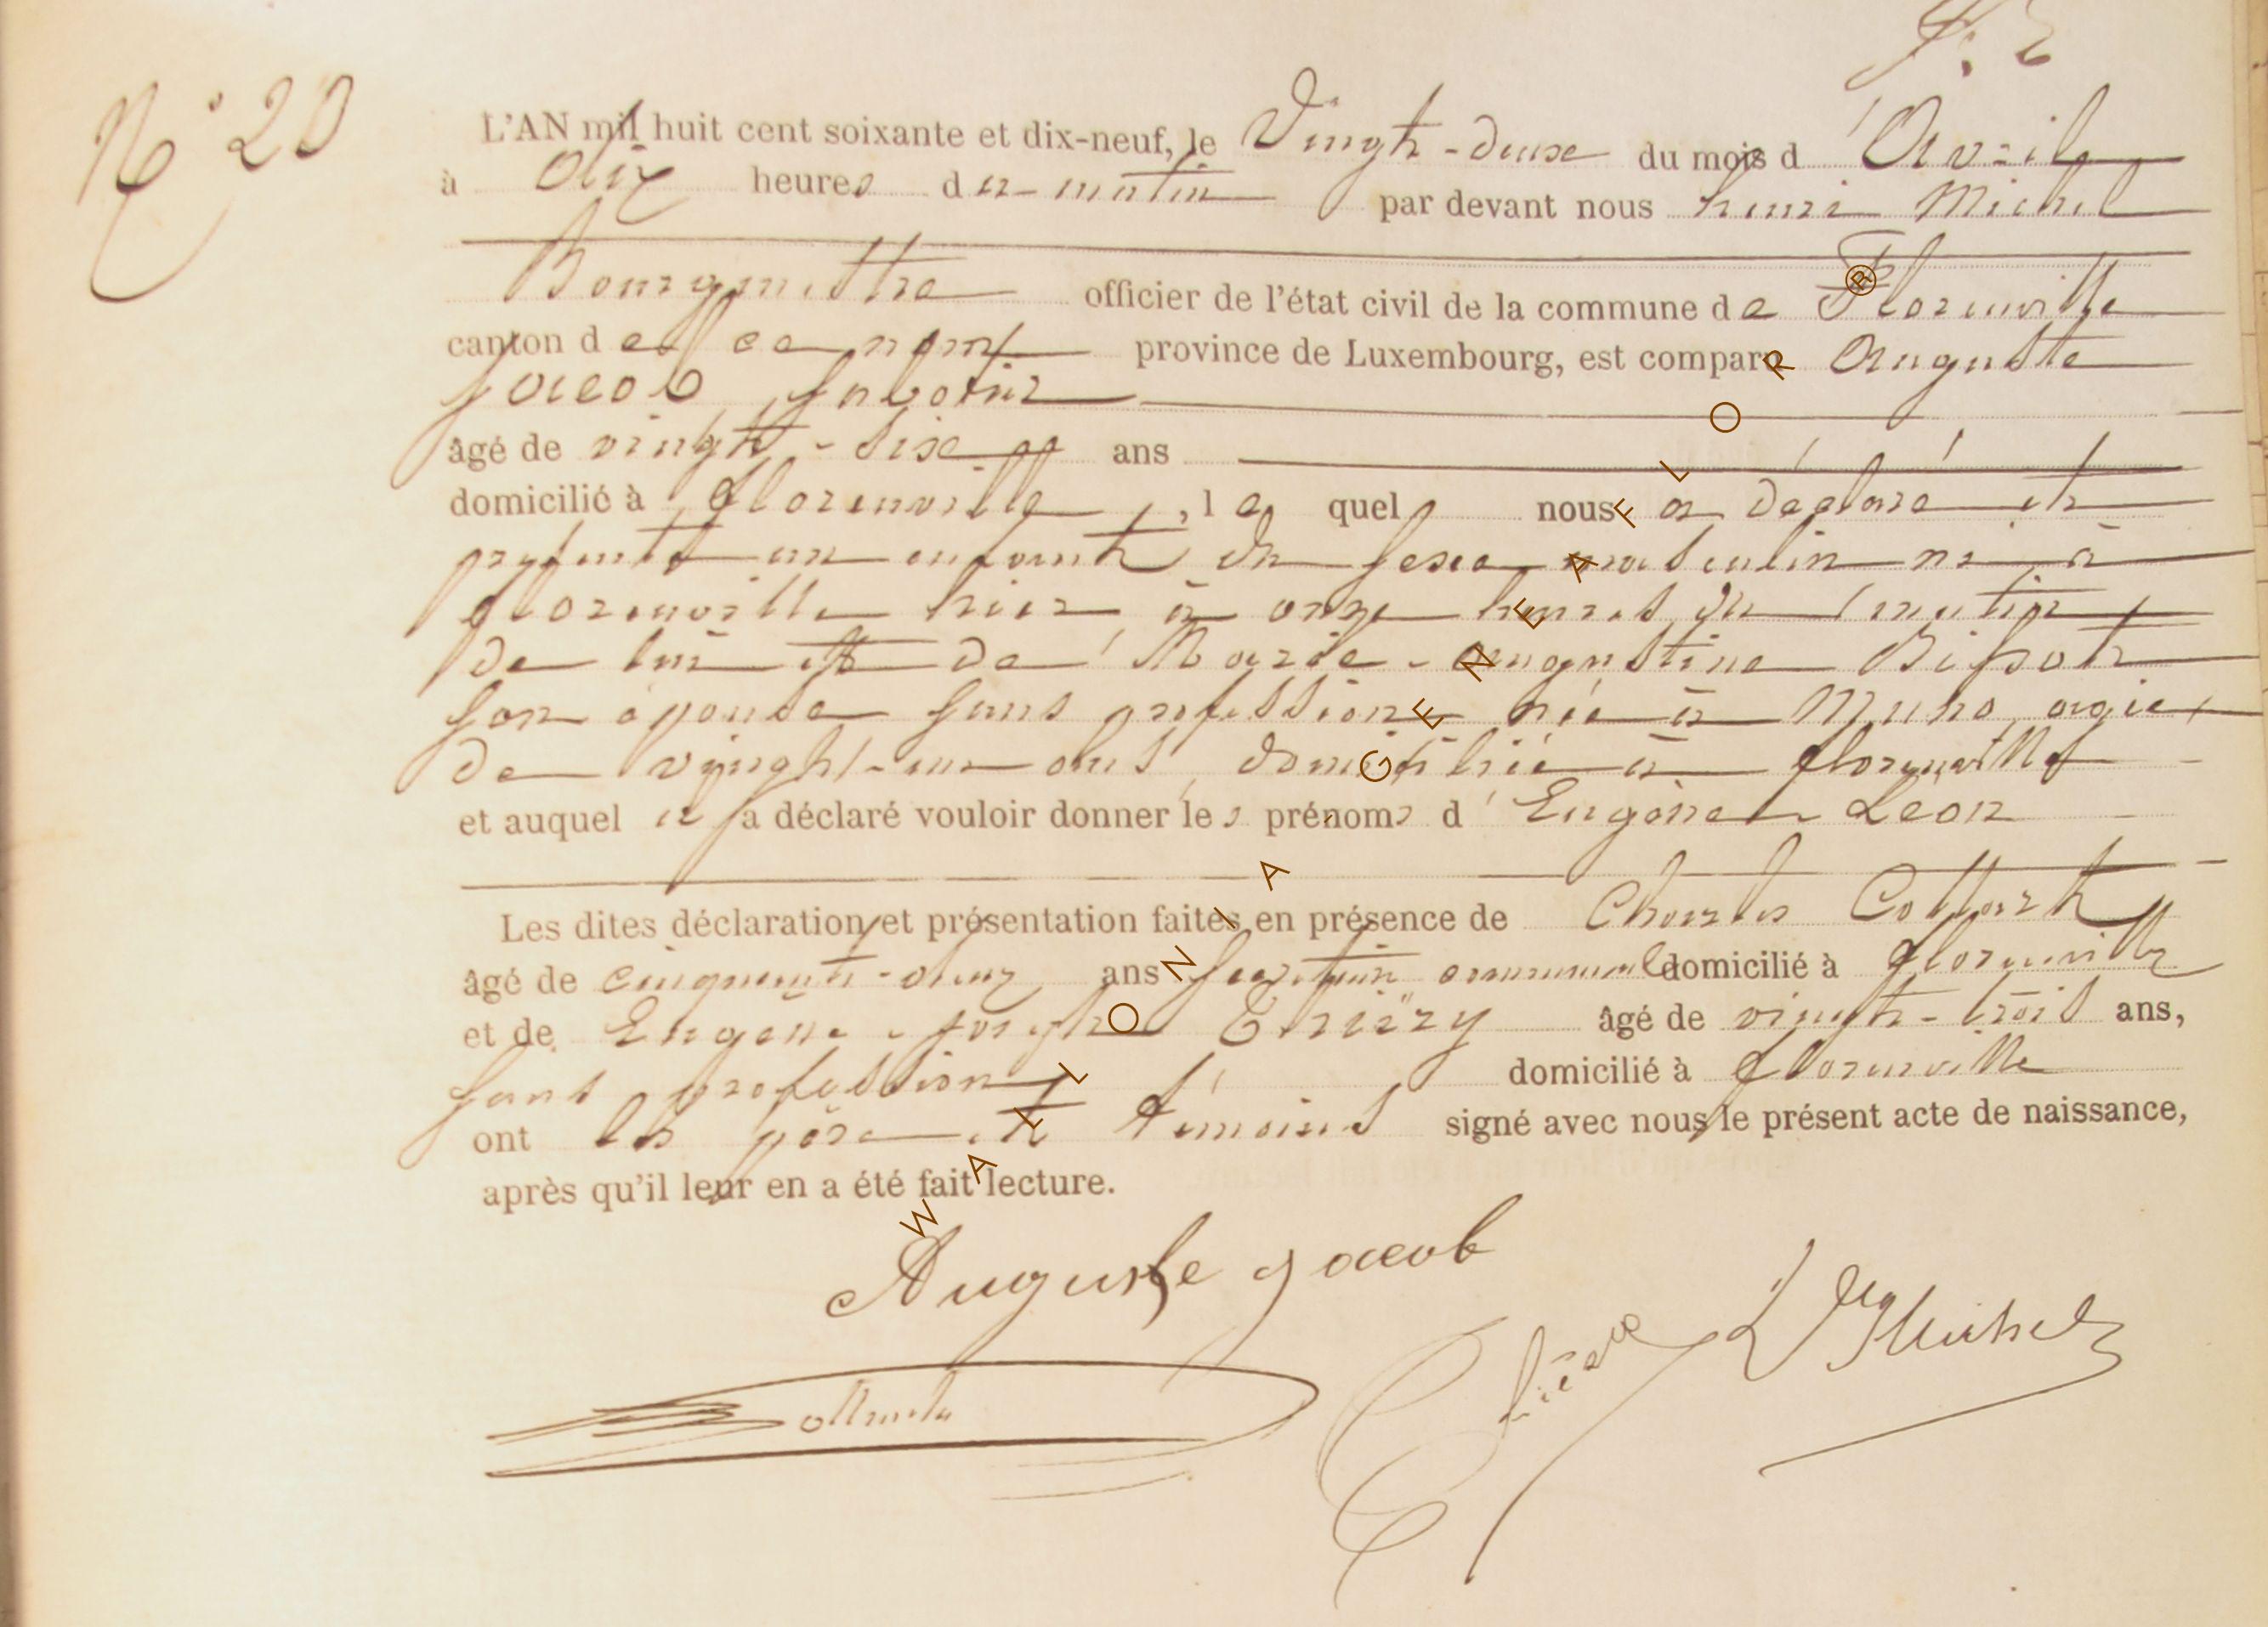 N° 20
L'AN mil huit cent soixante et dix-neuf, le Vingt-deux du mois d'Avril
à dix heures du matin par devant nous henri Michel
Bourgmestre officier de l'état civil de la commune de Florenville
canton de ce nom province de Luxembourg, est comparu Auguste
Jacob
âgé de vingt-six ans
domicilié à florenville, le quel nous a déclaré et
présenté un enfant du sexe masculin né à
florenville hier à onze heures du matin
de lui et de Marie-augustine
son épouse sans profession née à Muno, agée
de vingt-un ans, domiciliée à florenville
et auquel il a déclaré vouloir donner les prénoms d'Eugène Léon
Les dites déclaration et présentation faites en présence de Charles Collart
âgé de cinquante-deux ans Secrétaire communal domicilié à florenville
et de Eugène-joseph Thiéry âgé de vingt-trois ans,
sans profession domicilié à florenville
ont les père et témoins signé avec nous le présent acte de naissance,
après qu'il leur en a été fait lecture.
Auguste jacob
HMichel
WALLONIA GENEAFLOR ®